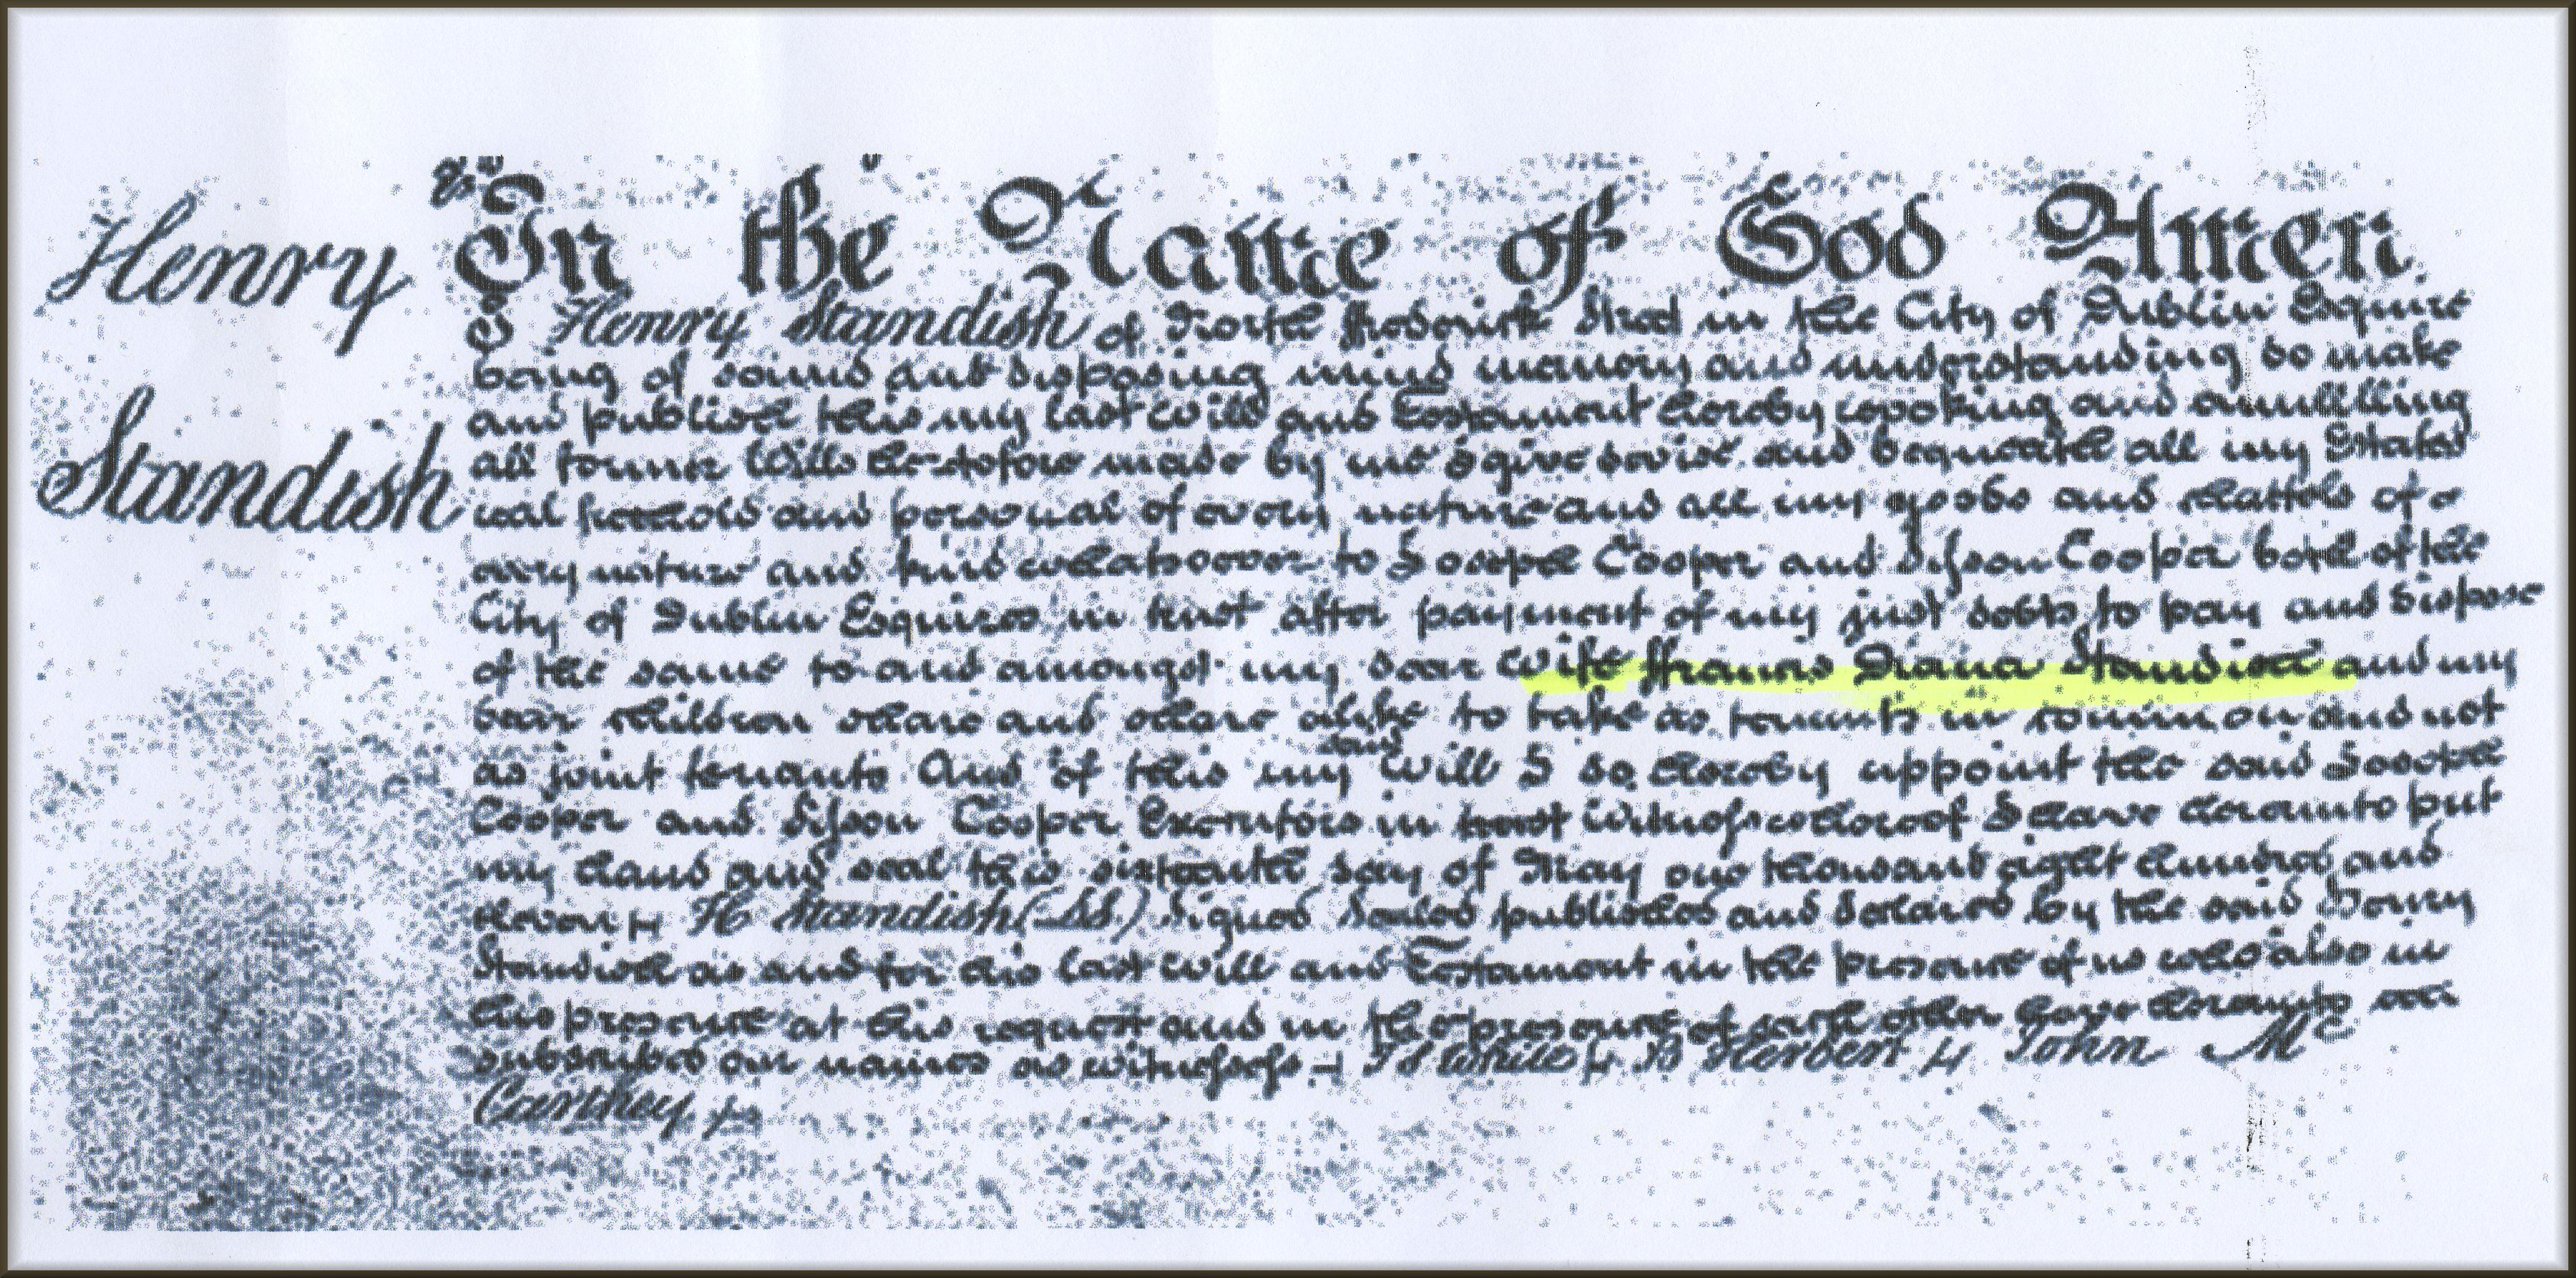 Henry
Standish
In the Name of God Amen
I Henry Standish of North Frederick Street in the City of Dublin Esquire
being of sound and disposing mind memory and understanding do make
and publish this my last Will and Testament hereby revoking and annulling
all former Wills heretofore made by me I give devise and bequeath all my Estates
real freehold and personal of every nature and all my goods and chattels of
every nature and kind whatsoever to Joseph Cooper and Sisson Cooper both of the
City of Dublin Esquires in trust after payment of my just debts to pay and dispose
of the same to and amongst my dear Wife ffrances Diana Standish and my
dear children share and share alike to take as tenants in common and not
as joint tenants And of this my said Will I do hereby appoint the said Joseph
Cooper and Sisson Cooper Executors in trust witness whereof I have hereunto put
my hand and seal this sixteenth day of May one thousand eight hundred and
eleven H Standish (LS) Signed Sealed published and declared by the said Henry
Standish as and for his last Will and Testament in the presence of us who also in
his presence at his request and in the presence of each other have hereunto
subscribed our names as witnesses White B Herbert John Mc
Carthey